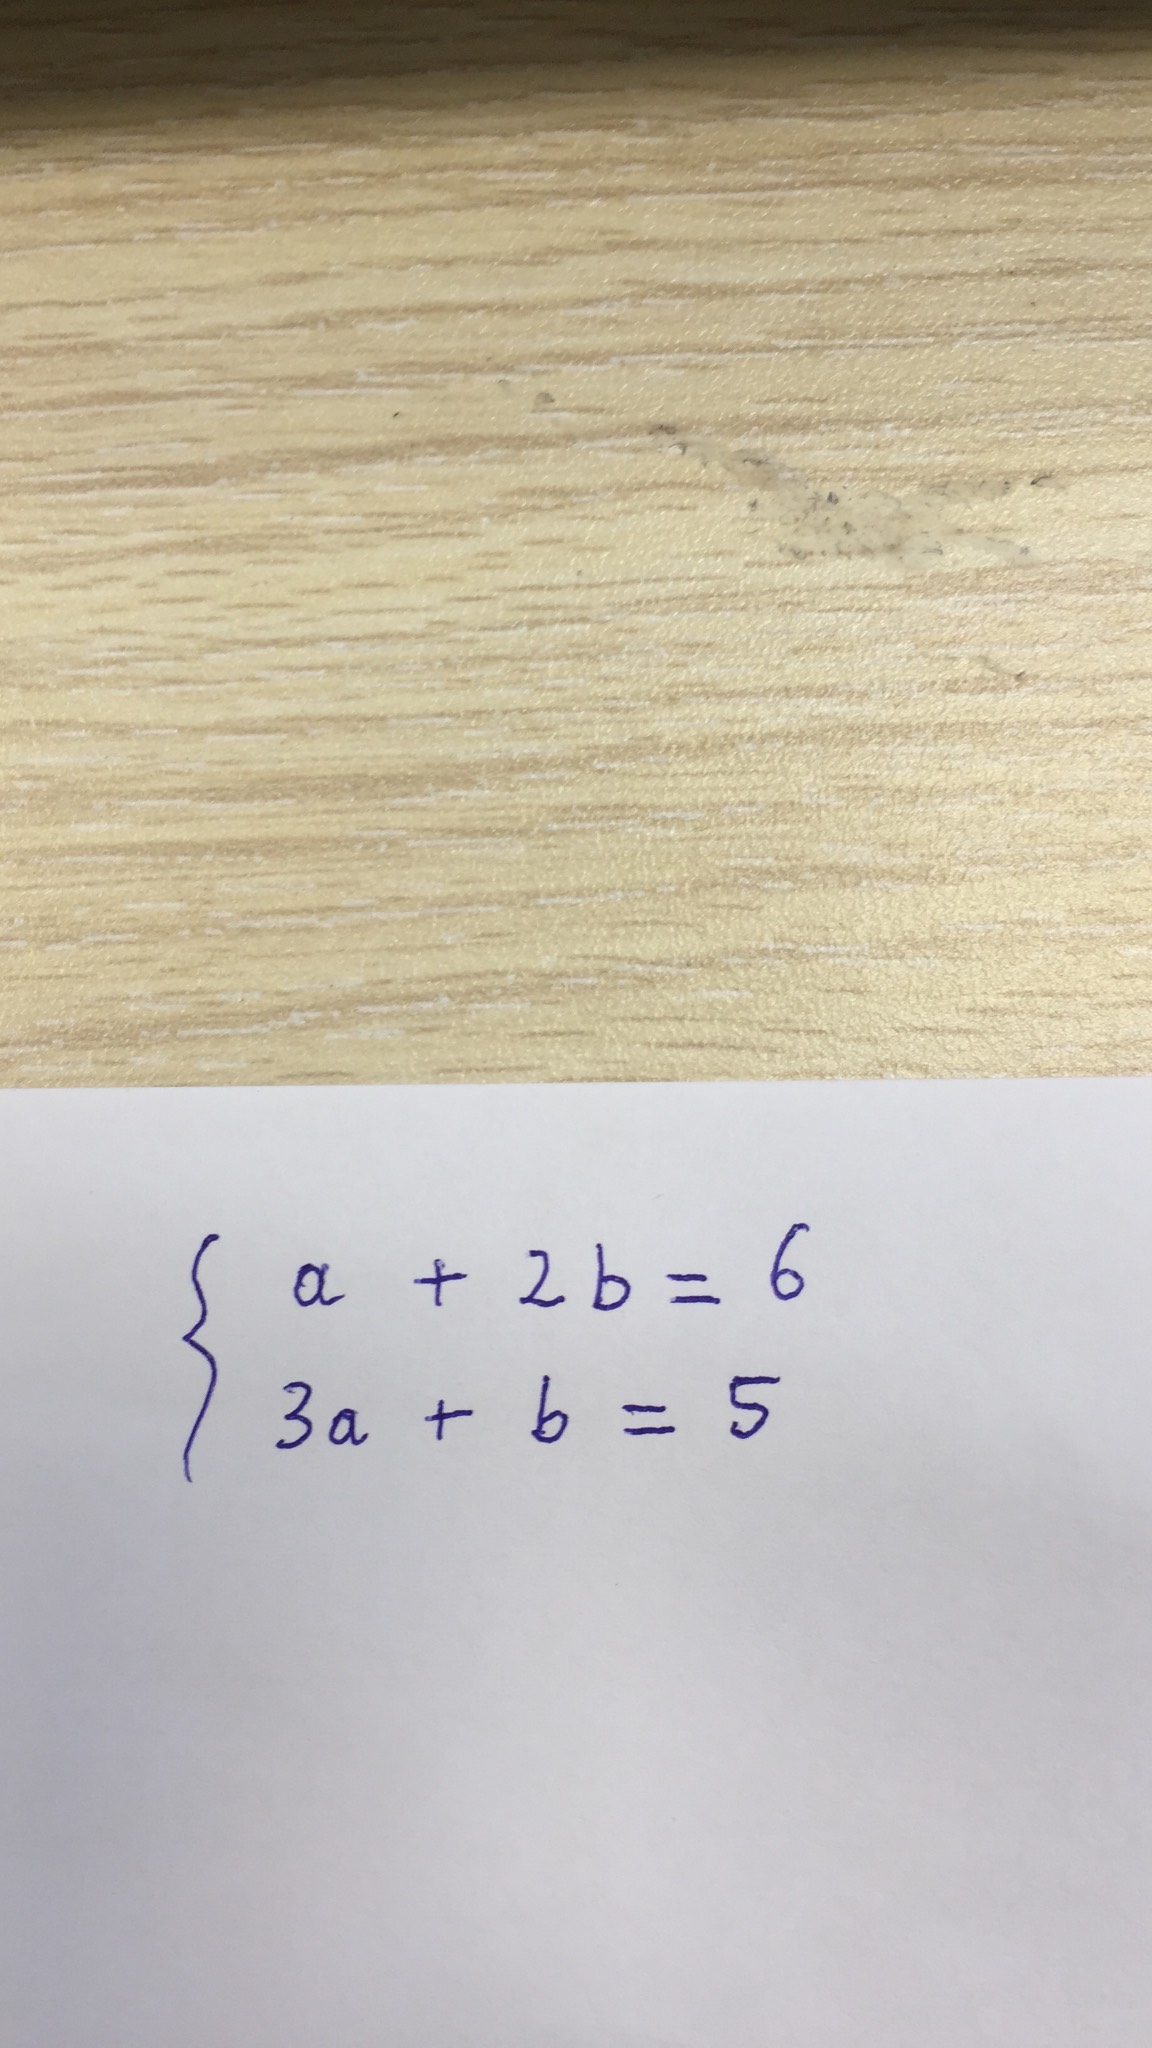 a + 2b = 6
3a + b = 5